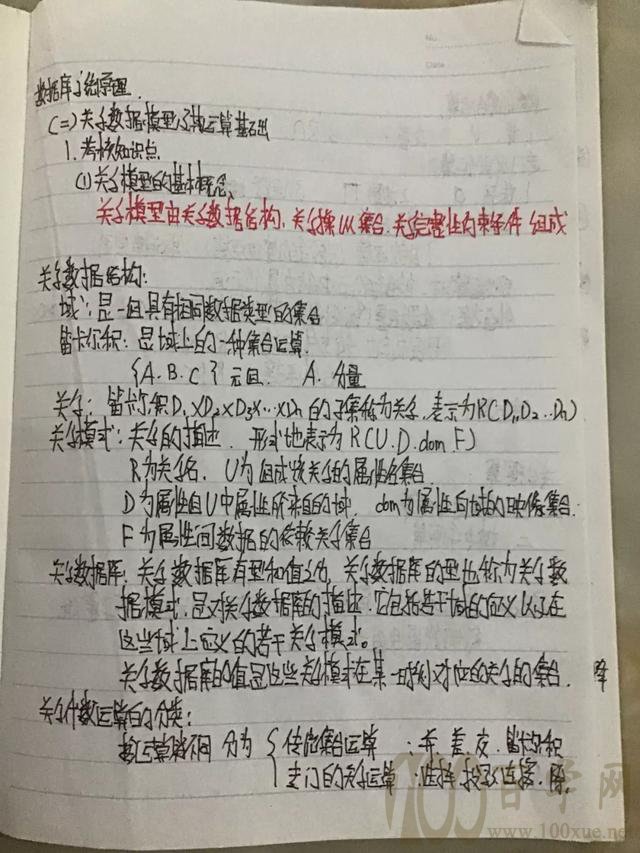 数据库系统原理.
(二)关系数据模型及其运算基础
1.考核知识点
(1)关系模型的基本概念、
关系模型由关系数据结构、关系操纵集合、关系完整性约束条件 组成
关系数据结构:
域:是一组具有相同数据类型的集合
笛卡尔积:是域上的一种集合运算.
{A.B.C}元组. A.分量
关系:笛卡尔积D₁×D₂×D₃×…×Dn的子集称为关系.表示为R(D₁,D₂…Dn)
关系模式:关系的描述. 形式地表示为R(U.D.dom.F)
R为关系名, U为组成该关系的属性名集合.
D为属性组U中属性所来自的域. dom为属性向域的映像集合.
F为属性间数据的依赖关系集合
关系数据库.关系数据库有型和值之分.关系数据库的型也称为关系数
据模式.是对关系数据库的描述.它包括若干域的定义以及在
这些域上定义的若干关系模式。
关系数据库的值是这些关系模式在某一时刻对应的关系的集合.
关系代数运算的分类:
按运算符不同 分为 { 传统集合运算 :并.差.交.笛卡尔积
专门的关系运算 :选择.投影.连接.除.
No
Date
百学网
www.100xue.net